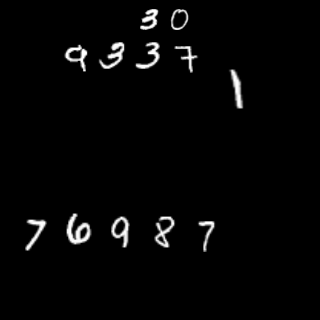 30
9337
1
76987